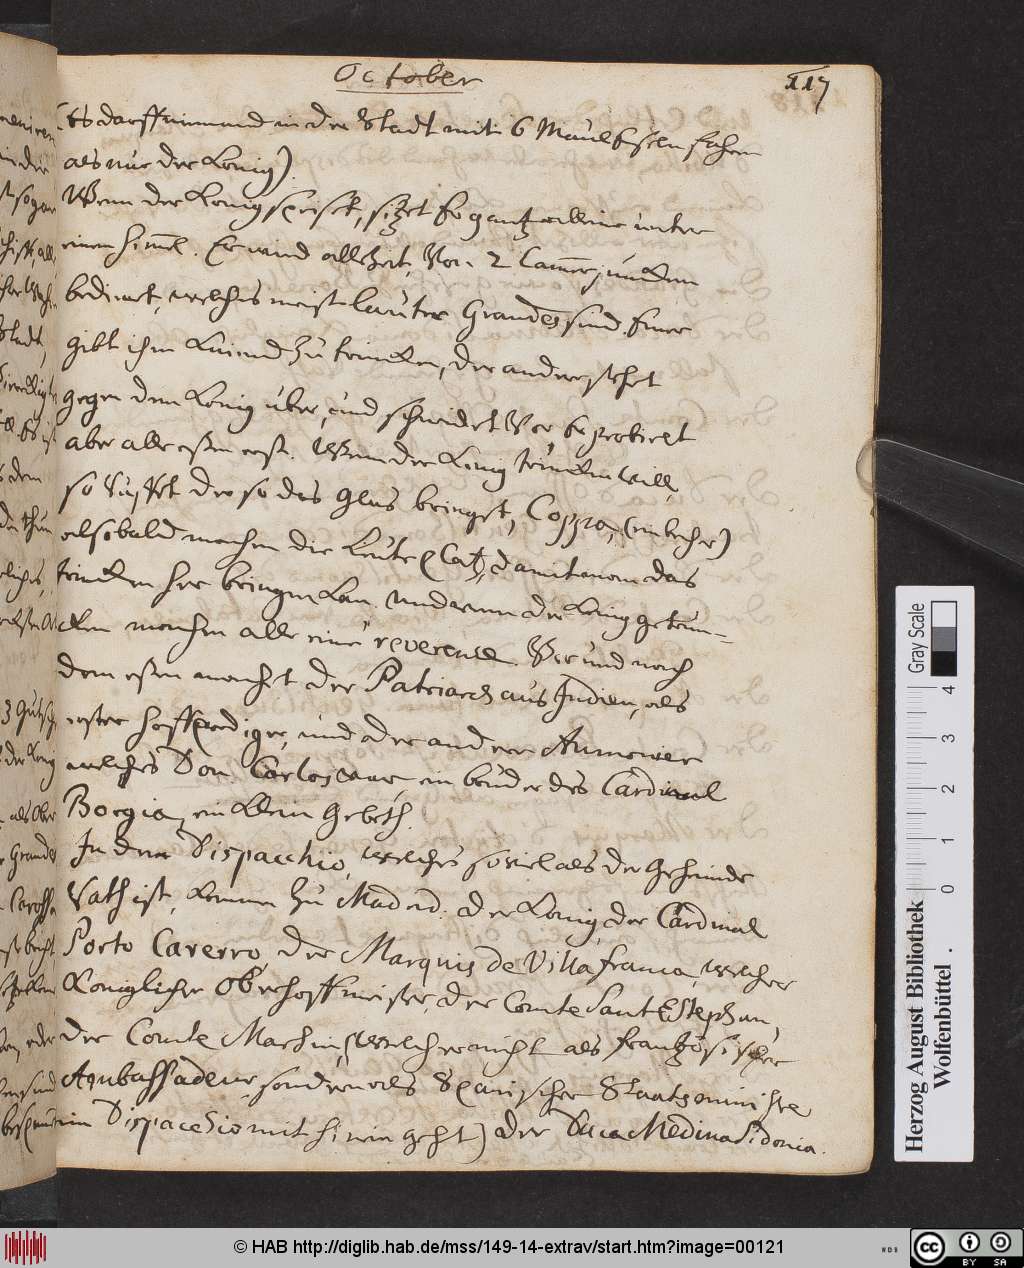 October
117
Es darff niemand in der Stadt mit 6 Maul Eseln fahren
als nur der König)
Wenn der König speist, sitzet Er gantz alleine unter
einem Himel. Er wird allezeit von 2 Camerjunckern
bedienet, welches meist lauter Grandes sind. Einer
gibt ihm kniend zu trincken, der andere stehet
gegen dem König über, und schneidet Vor, Er probiert
aber alle eßen erst. Wenn der König trincken will,
so ruffet der so das Glas bringt, Coppa, (ein becher)
alsobald machen die Leute Platz, damit man das
trincken her bringen kan. Und wenn der König getrun-
cken machen alle eine reverence. Vor und nach
dem eßen macht der Patriarch aus Indien, als
erster Hoffprediger, und oder ander Aumonier
welches Don Carlos war, ein bruder des Cardinal
Borgia, ein klein Gebeth.
In dem Dispacchio, welches so viel als der Geheimde
Rath ist, kommen zu Madrid. der König, der Cardinal
Porto Carerro, der Marquis de Villa franca, welcher
Königlicher Oberhoffmeister, der Comte Sant Estephan,
der Comte Marsin, (welcher nicht als frantzösischer
Ambassadeur, sondern als Spanischer Staatsministre
im Dispacchio mit hinein geht) der Duca Medina Sidonia.
Herzog August Bibliothek
Wolfenbüttel.
Gray Scale
0 1 2 3 4
© HAB http://diglib.hab.de/mss/149-14-extrav/start.htm?image=00121
WDB
CC BY SA